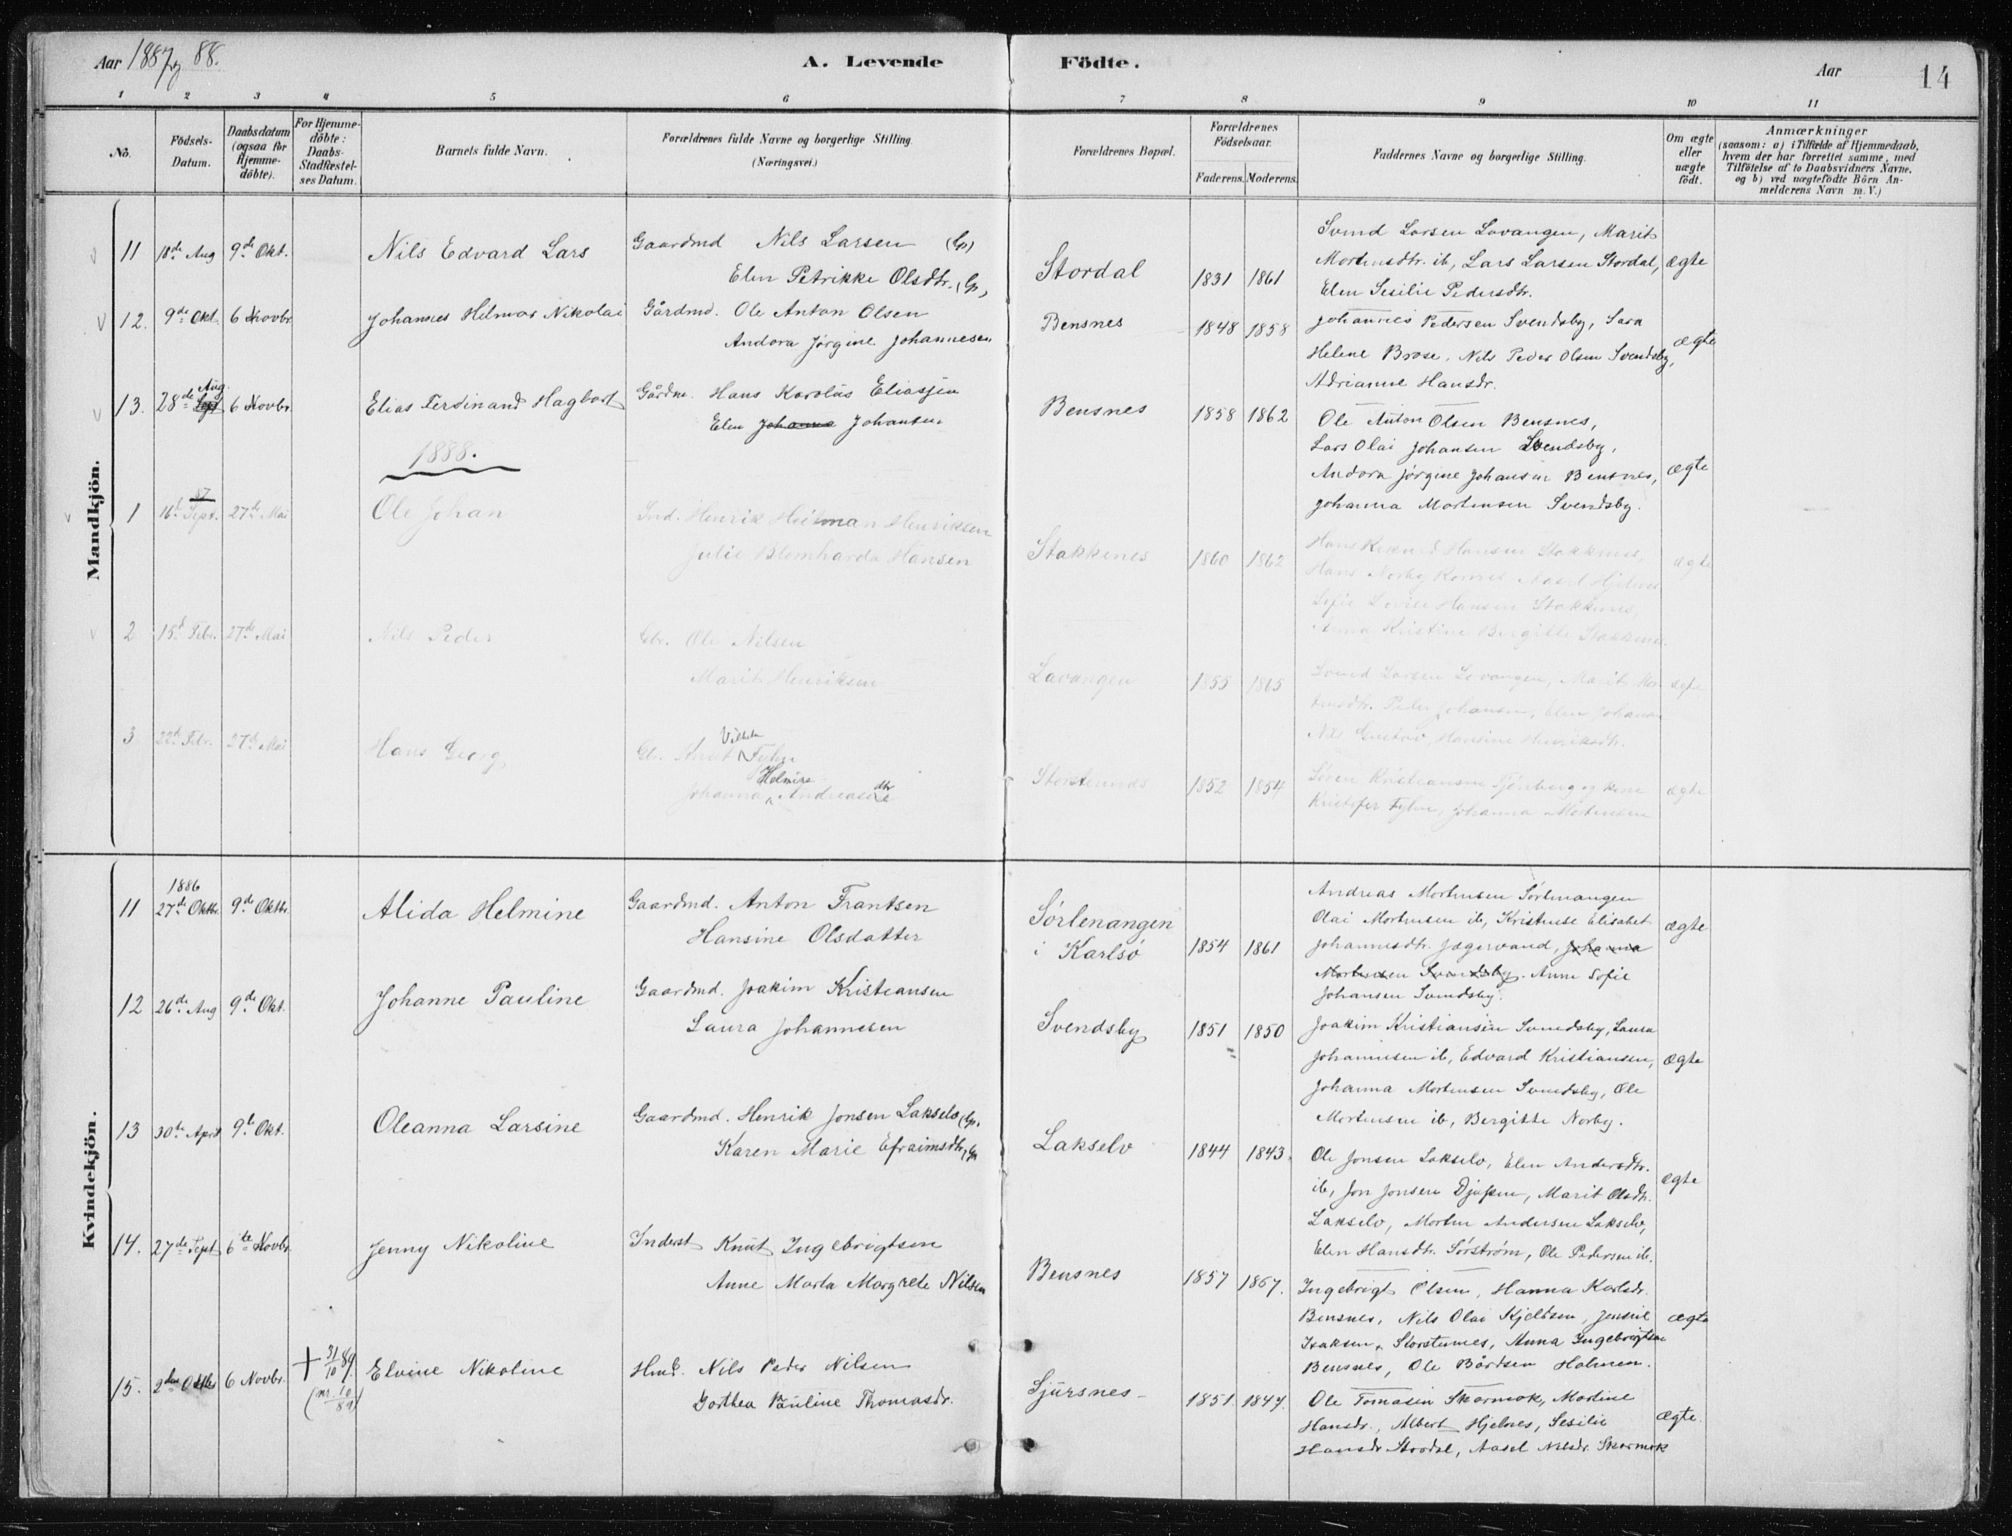 Aar 1887 og 88.
A. Levende Födte.
Aar
14
1 2 3 4 5 6 7 8 9 10 11
No.
Födsels-Datum.
Daabsdatum (ogsaa for Hjemme-döbte).
For Hjemme-döbte: Daabs-Stadfæstel-ses Datum.
Barnets fulde Navn.
Forældrenes fulde Navne og borgerlige Stilling (Næringsvei.)
Forældrenes Bopæl.
Forældrenes Födselsaar.
Faderens. Moderens.
Faddernes Navne og borgerlige Stilling.
Om ægte eller uægte födt.
Anmærkninger
(saasom: a) i Tilfælde af Hjemmedaab, hvem der har forrettet samme, med Tilföielse af to Daabsvidners Navne, og b) ved uægtefödte Börn An-melderens Navn m. V.)
Mandkjön.
11 18de Aug 9de Okt. Nils Edvard Lars
Gaardmd Nils Larsen
Elen Petrikke Olsdtr.
Stordal 1831 1861
Svend Larsen Lavangen, Marit
Mortensdtr. ib, Lars Larsen Stordal,
Elen Sesilie Pedersdtr.
ægte
12. 9de Okt. 6 Novbr Johannes Helmar Nikolai
Gårdmd. Ole Anton Olsen
Andora Jørgine Johannesen
Bensnes 1848 1858
Johannes Pedersen Svendsby, Sara
Helene Brose, Nils Peder Olsen Svendsby,
Adrianne Hansdr.
ægte
13. 28de Aug 6 Novbr. Elias Ferdinand Hagbart
Gårdm. Hans Karolus Eliassen
Elen Johanna Johansen
Bensnes 1858 1862
Ole Anton Olsen Bensnes,
Lars Olai Johansen Svendsby,
Andora Jørgine Johansen Bensnes,
Johanna Mortensen Svendsby.
ægte
1888.
1 16de Sept. 87 27de Mai Ole Johan
Ind. Henrik Heitman Henriksen
Julie Blomharda Hansen
Stakkenes 1860 1862
Hans Hansen Stakknes,
Hans Norby
Sofie Hansen Stakknes,
Anna Kristine Bergitte Stakknes
ægte
2 15d Febr. 27de Mai Nils Peder
Gbr. Ole Nilsen
Marit Henriksen
Lavangen 1855 1865
Svend Larsen Lavangen, Marit Mor-
tensdtr. Peder Johansen, Elen Johans
Nils Gustav, Hansine Henriksdtr.
ægte
3 22de Febr. 27de Mai Hans Georg
Gbr. Knut Vilhelm
Johanna Helmine Andreasdtr
Storsteinnes 1852 1854
Søren Kristiansen og kone
Kristofer Johanna Mortensen
ægte
Kvindekjön.
11 1886 27de Oktbr. 9de Oktbr. Alida Helmine
Gaardmd. Anton Frantsen
Hansine Olsdatter
Sørlenangen
i Karlsø 1854 1861
Andreas Mortensen Sørlenangen
Olai Mortensen ib, Kristense Elisabet
Johannesdtr. Jægervand, Johanna
Mortensen Svendsby. Anne Sofie
Johansen Svendsby.
ægte
12 26de Aug 9de Okt. Johanne Pauline
Gaardmd. Joakim Kristiansen
Laura Johannesen
Svendsby 1851 1850
Joakim Kristiansen Svendsby, Laura
Johannesen ib, Edvard Kristiansen,
Johanna Mortensen Svendsby, Ole
Mortensen ib, Bergitte Norby.
ægte
13 30te April 9de Okt. Oleanna Larsine
Gaardmd. Henrik Jonsen Lakselv
Karen Marie Efraimsdtr
Lakselv 1844 1843
Ole Jonsen Lakselv, Elen Andersdtr.
ib, Jon Jonsen Marit Olsdtr.
Lakselv, Morten Andersen Lakselv,
Elen Hansdtr. Sørstrøm, Ole Pedersen ib.
ægte
14. 27de Sept 6te Novbr. Jenny Nikoline
Inderst Knut Ingebrigtsen
Anne Marta Margrete Nilsen
Bensnes 1857 1867.
Ingebrigt Olsen, Hanna Karlsdr.
Bensnes, Nils Olai Kjeldsen, Jensine
Isaksen, Storstennes, Anna Ingebrigtsen
Bensnes, Ole Bårdsen Holmen.
ægte
15. 2den Oktbr 6 Novbr. + 31/10 89. (nr. 10/89) Elvine Nikoline
Hmd. Nils Peder Nilsen
Dorthea Pauline Thomasdr.
Sjursnes 1851. 1847.
Ole Tomasen Skarmok, Martine
Hansdr., Albert Hjelnes, Sesilie
Hansdr Stordal, Aasel Nilsdr. Skarmok
ægte.